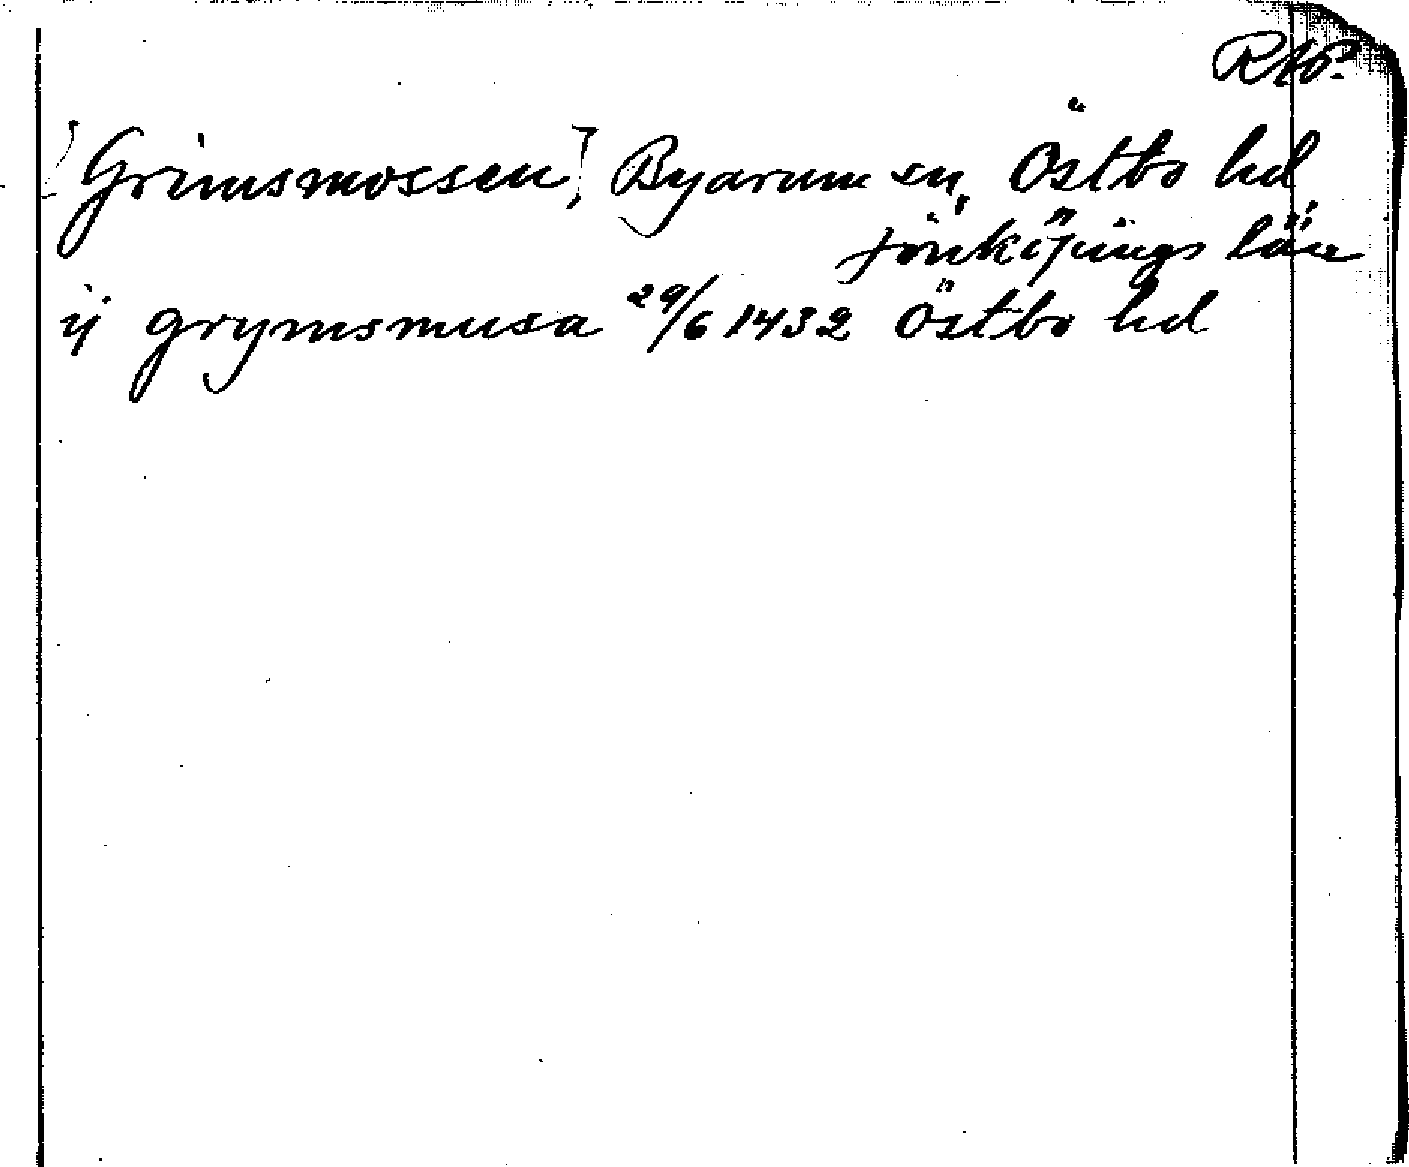 RAP.
[Grimsmossen], Byarum sn, Östbo hd
Jönköpings län
ij grymsmusa 29/6 1432 Östbo hd